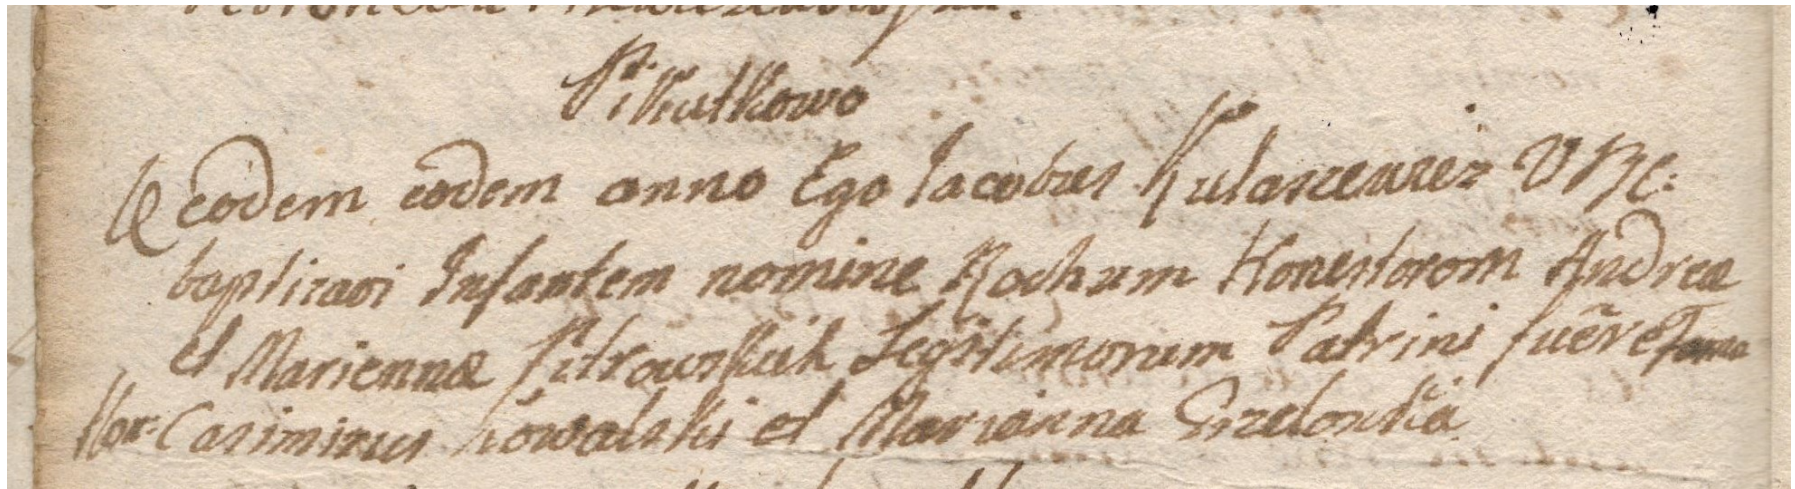 Pikutkowo
eodem eodem anno Ego Jacobus Kulascewicz VRE:
baptisavi Infantem nomine Rochum Honestorom Andreæ
et Mariennæ Pitrowskich Legitimorum Patrini fuēre
Hon: Casimirus Kowalski et Marianna